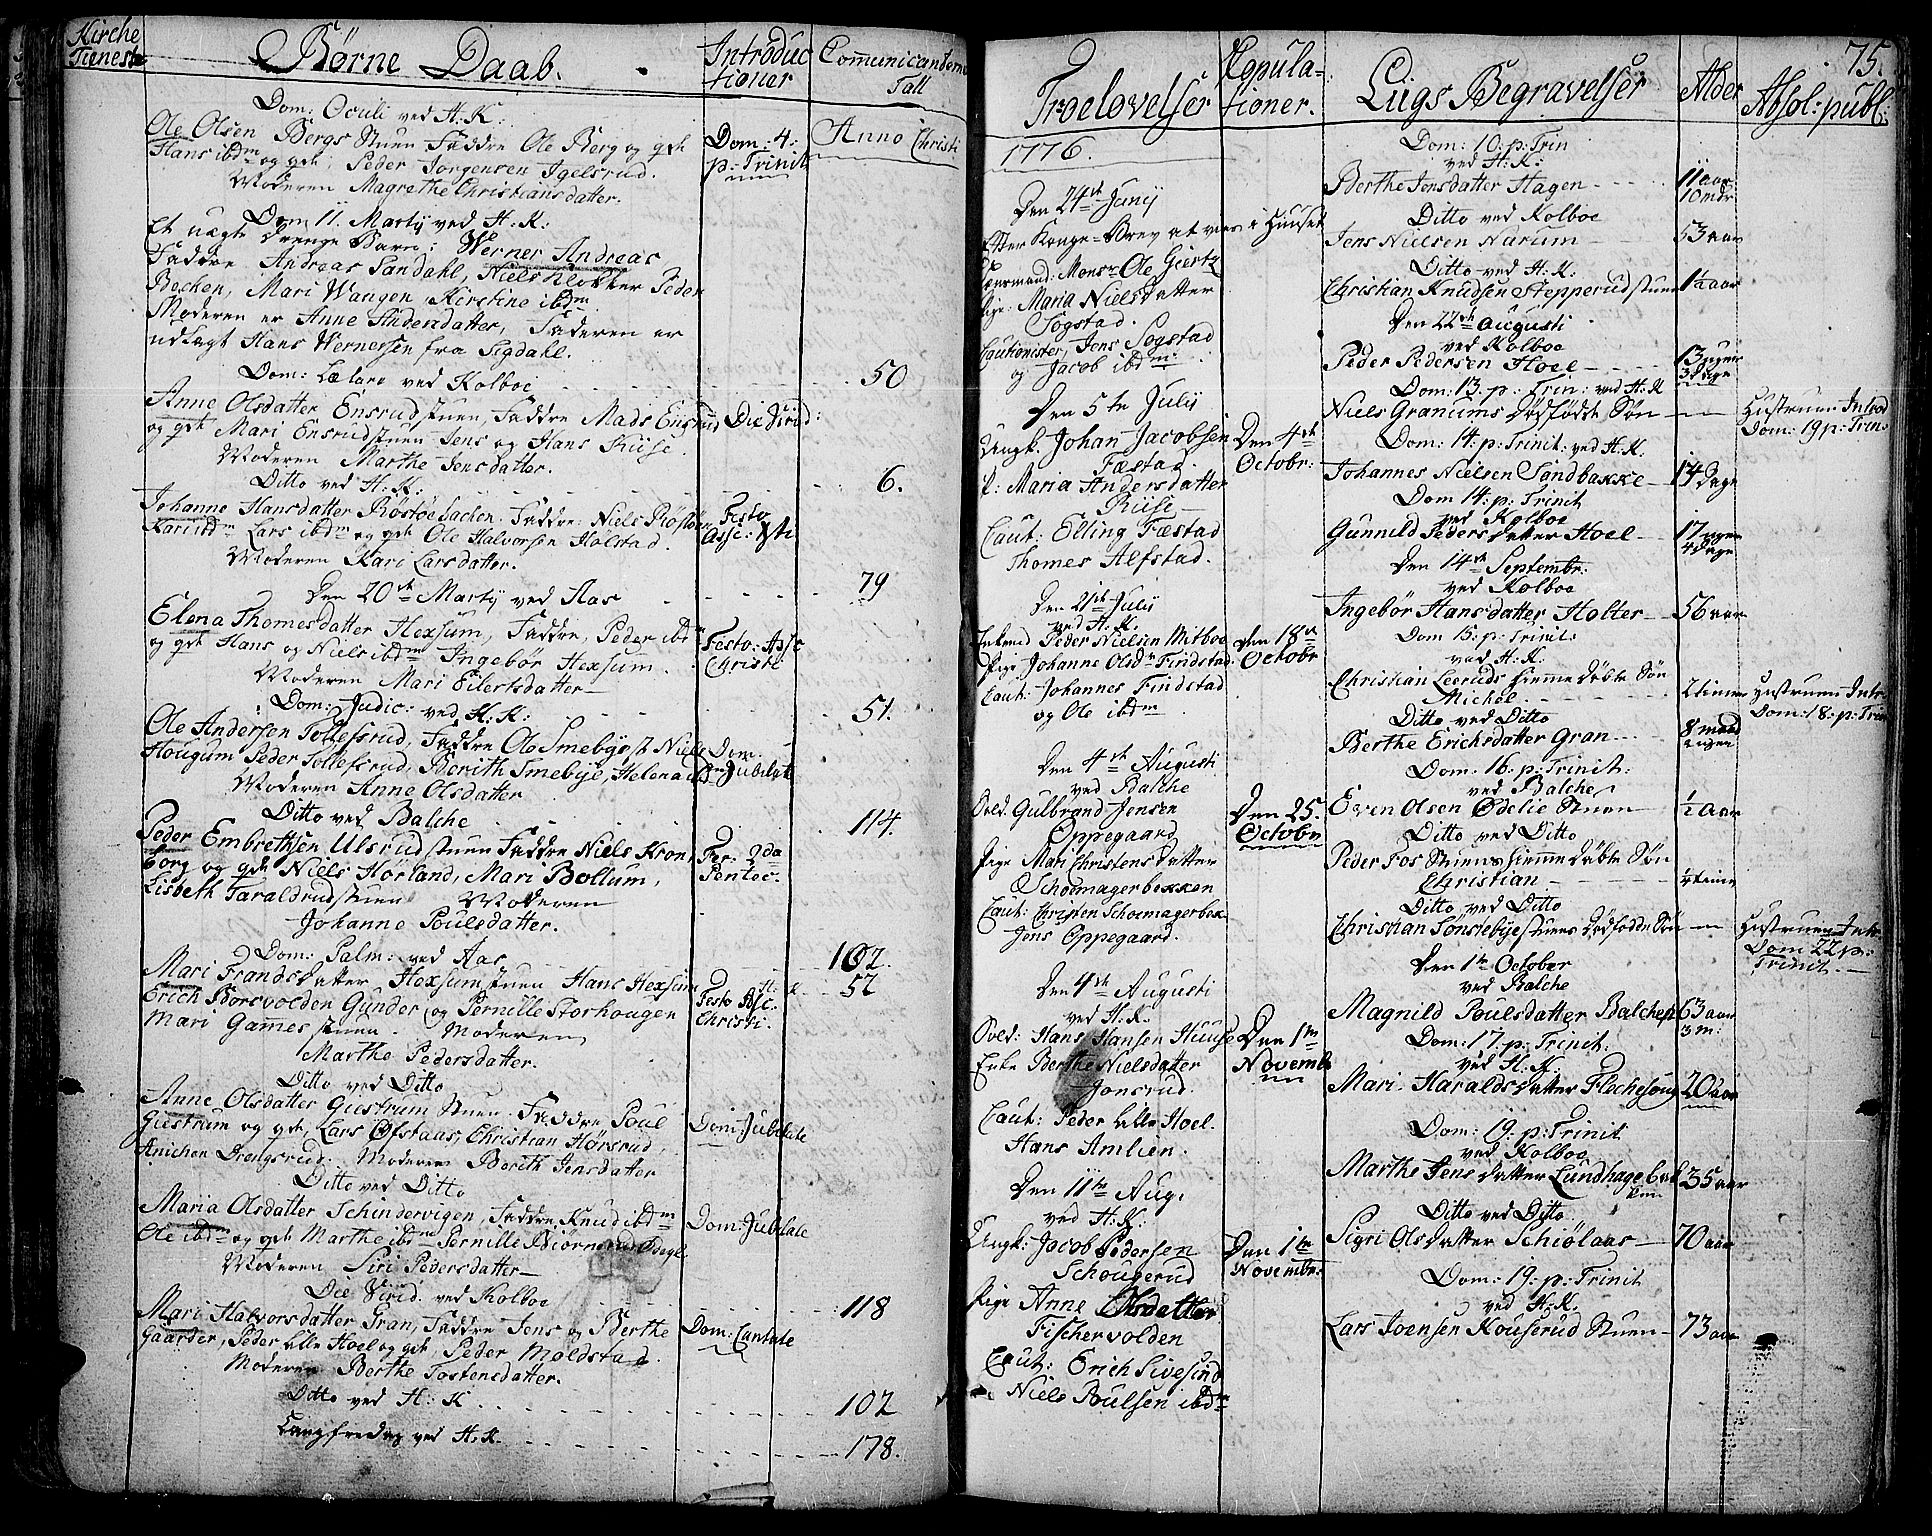 Kirche
Tienest
Børne Daab.
Introduc
tioner
Comunicanderne
Tall
Dom: Oculi ved H. K:
Ole Olsen Bergs Stuen Faddre Ole Berg og gdt
Hans ibdm og gdt, Peder Jorgensen Igelsrud.
Moderen Magrethe Christiansdatter.
Dom: 4.
p: Trinit
Anno Christi
Dom 11. Martij ved H: K:
Et uægte Drenge Barn: Werner Andreas
Faddre Andreas Sandahl, Niels Klokker Peder
Bechen, Mari Wangen, Kirstine ibdm
Moderen er Anne Andersdatter, Faderen er
udlagt Hans Wernersen fra Sigdahl.
Dom: Lætare ved Kolboe
50
Anne Olsdatter Ensrudstuen, Faddre Mads Ensrud
og gdt Mari Ensrudstuen Jens og Hans Kiise.
Moderen Marthe Jensdatter.
Die Virid:
Ditto ved H: K:
6.
Johanne Hansdatter Røstøebachen. Faddre: Niels Røstøen
Kari ibdm Lars ibdm og gdt Ole Halvorsen Holstad.
Moderen Kari Larsdatter.
Festo
Asc: Xti
Den 20de Martij ved Aas
79
Elena Thomesdatter Hexsum, Faddre, Peder ibdm
og gdt Hans og Niels ibdm Ingebør Hexsum.
Moderen Mari Eilertsdatter
Festo: Asc
Christi
Dom: Judic: ved H: K:
51.
Ole Andersen Tollefsrud, Faddre Ole Smebye, Niels
Hougum Peder Tollefsrud, Berith Smebye, Helena
Moderen Anne Olsdatter
Dom:
Jubilate
Ditto ved Balche
114.
Peder Embrethsen Ulsrudstuen Faddre Niels Kron
borg og gdt Niels Hørland, Mari Bollum,
Lisbeth Taraldrudstuen Moderen
Johanne Poulsdatter.
Fer: 2da
Pentec:
Dom: Palm: ved Aas
102.
H. K
57
Mari Frandsdatter Hexsumstuen Hans Hexsum
Erich Borsvolden Gunder og Pernille Storhougen
Mari Gamestuen. Moderen
Marthe Pedersdatter.
Festo Asc:
Christi.
Ditto ved Ditto
Anne Olsdatter Giestrum Stuen. Faddre Poul
Giestrum og gdt, Lars Ofstaas, Christian Hørsrud,
Anichen Drengsrud. Moderen Berith Jensdatter
Dom: Jubilate
Ditto ved Ditto
Maria Olsdatter Schindervigen, Faddre, Knud ibdm
Ole ibdm og gdt Marthe ibdm Pernille Biørnerud
Moderen Siri Pedersdatter
Dom: Jubilate
Die Virid: ved Kolboe
118
Mari Halvorsdatter Gran, Faddre Jens og Berthe
Gaarder, Peder lille Hoel og gdt, Peder Moldstad.
Moderen Berthe Tostensdatter.
Dom: Cantate
Ditto ved H: K
102
Langfredag ved H. K.
178.
75.
Troelovelser
Copula-
tioner.
Liigs Begravelser
Alder
Absol: publ:
1776.
Den 24de Junij
Efter Konge-Brev at vies i Huuset
Mons: Ole Giertz
Pige: Maria Nielsdatter
Sogstad.
Cautionister, Jens Sogstad
og Jacob ibdm
Den 5te Julij
Ungk: Johan Jacobsen
Fæstad.
P: Maria Andersdatter
Riise
Caut: Elling Fæstad
Thomes Alfstad.
Den 4de
Octobr:
Den 21de Julij
ved H. K.
Enkemd Peder Nielsen Mitboe
Pige Johanne Olsdr Findstad
Caut: Johannes Findstad
og Ole ibdm
Den 18de
Octobr
Den 4de Augusti
ved Balche
Sved: Gulbrand Jensen
Oppegaard
Pige Mari Christensdatter
Schoemagerbekken
Caut: Christen Schoemagerbek
Jens Oppegaard.
Den 25.
Octobr
Den 4de Augusti
ved H: K.
Sved: Hans Hansen Huuse
Enke Berthe Nielsdatter
Jonsrud.
Caut: Peder lille Hoel.
Hans Amlien.
Den 1ste
Novemb
Den 11te Aug:
ved H: K:
Ungk: Jacob Pedersen
Schougerud
Pige Anne Olsdatter
Fischervolden
Caut: Erich Sivesind
Niels Poulsen ibdm
Den 1ste
Novembr:
Dom: 10. p: Trin
ved H: K:
Berthe Jensdatter Hagen
11 aar
10 mdr
Ditto ved Kolboe
Jens Nielsen Narum
53 aar
Ditto ved H: K:
Christian Knudsen Stepperudstuen
1½ aar
Den 22de Augusti
ved Kolboe
Peder Pedersen Hoel
13 uger
3 Dage
Dom: 13. p: Trin: ved H: K
Niels Graniums Dødfødte Søn
Hustruen Introd
Dom: 19 p: Trin:
Dom: 14. p: Trinit: ved H: K.
Johannes Nielsen Sandbakke
14 Dage
Dom 14: p: Trinit
ved Kolboe
Gunnild Pedersdatter Hoel
17 uger
4 Dage
Den 14de Septembr:
ved Kolboe
Ingebør Hansdatter Holter
56 aar
Dom 15: p: Trinit:
ved H: K:
Christian Leeruds hiemmedøbte Søn
Michel
2 timer
Hustruen Intro
Dom: 18: p: Trin
Ditto ved Ditto
Berthe Erichsdatter Gran
8 maad
2 uger
Dom: 16: p: Trinit:
ved Balche
Even Olsen Ødelie Stuen
½ Aar
Ditto ved Ditto
Peder Fos Stuens hiemmedøbte Søn
Christian
¼ time
Ditto ved Ditto
Christian Sønstebyestuens Dødfødde Søn
Hustruen Intr
Dom 22 p:
Trinit.
Den 1te October
ved Balche
Magnild Poulsdatter Balche
63 aar
3 m:
Dom: 17. p: Trinit:
ved H: K:
Mari Haraldsdatter Flachesoug
20 aar
Dom: 19: p: Trinit
ved Kolboe
Marthe Jensdatter Lundhage
35 aar
Ditto ved Ditto
Sigri Olsdatter Schiølaas
70 aar
Dom: 19: p: Trinit
ved H: K.
Lars Joensen Kouserud Stuen
73 aar